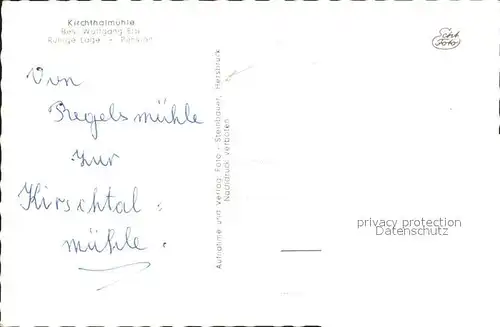 Kirchthalmühle
Bes. Wolfgang
Ruhige Lage - Pension
Echt
Foto
Von
Regelsmühle
zur
Kirschtal-
mühle.
Aufnahme und Verlag: Foto - Steinbauer, Hersbruck
Nachdruck verboten
privacy protection
Datenschutz